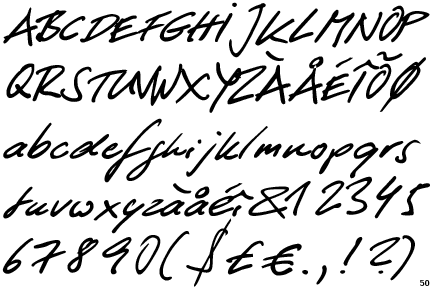 ABCDEFGHiJKLMNOP
QRSTUVWXYZÀÅÉÎÕØ
abcdefghijklmnopqrs
tuvwxyzàåéî&12345
67890($£€.,!?)
50